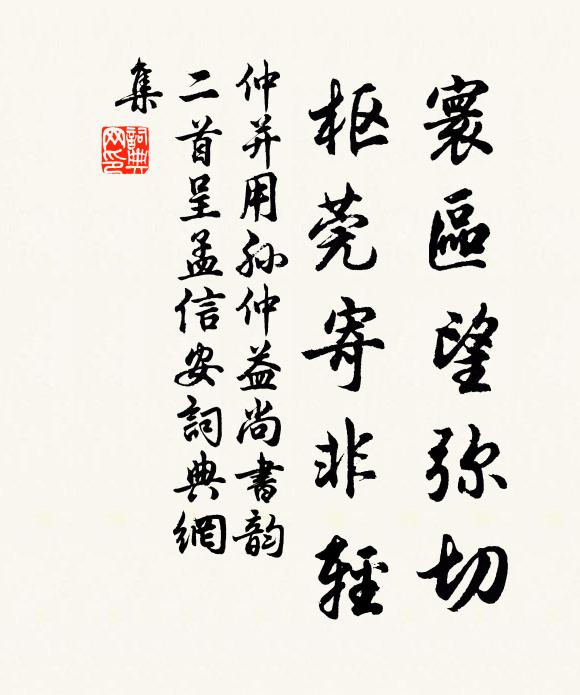 寰區望弥切
枢莞寄非輕
仲并用孙仲益尚書韵
二首呈孟信安詞典網
集
詞典
网印